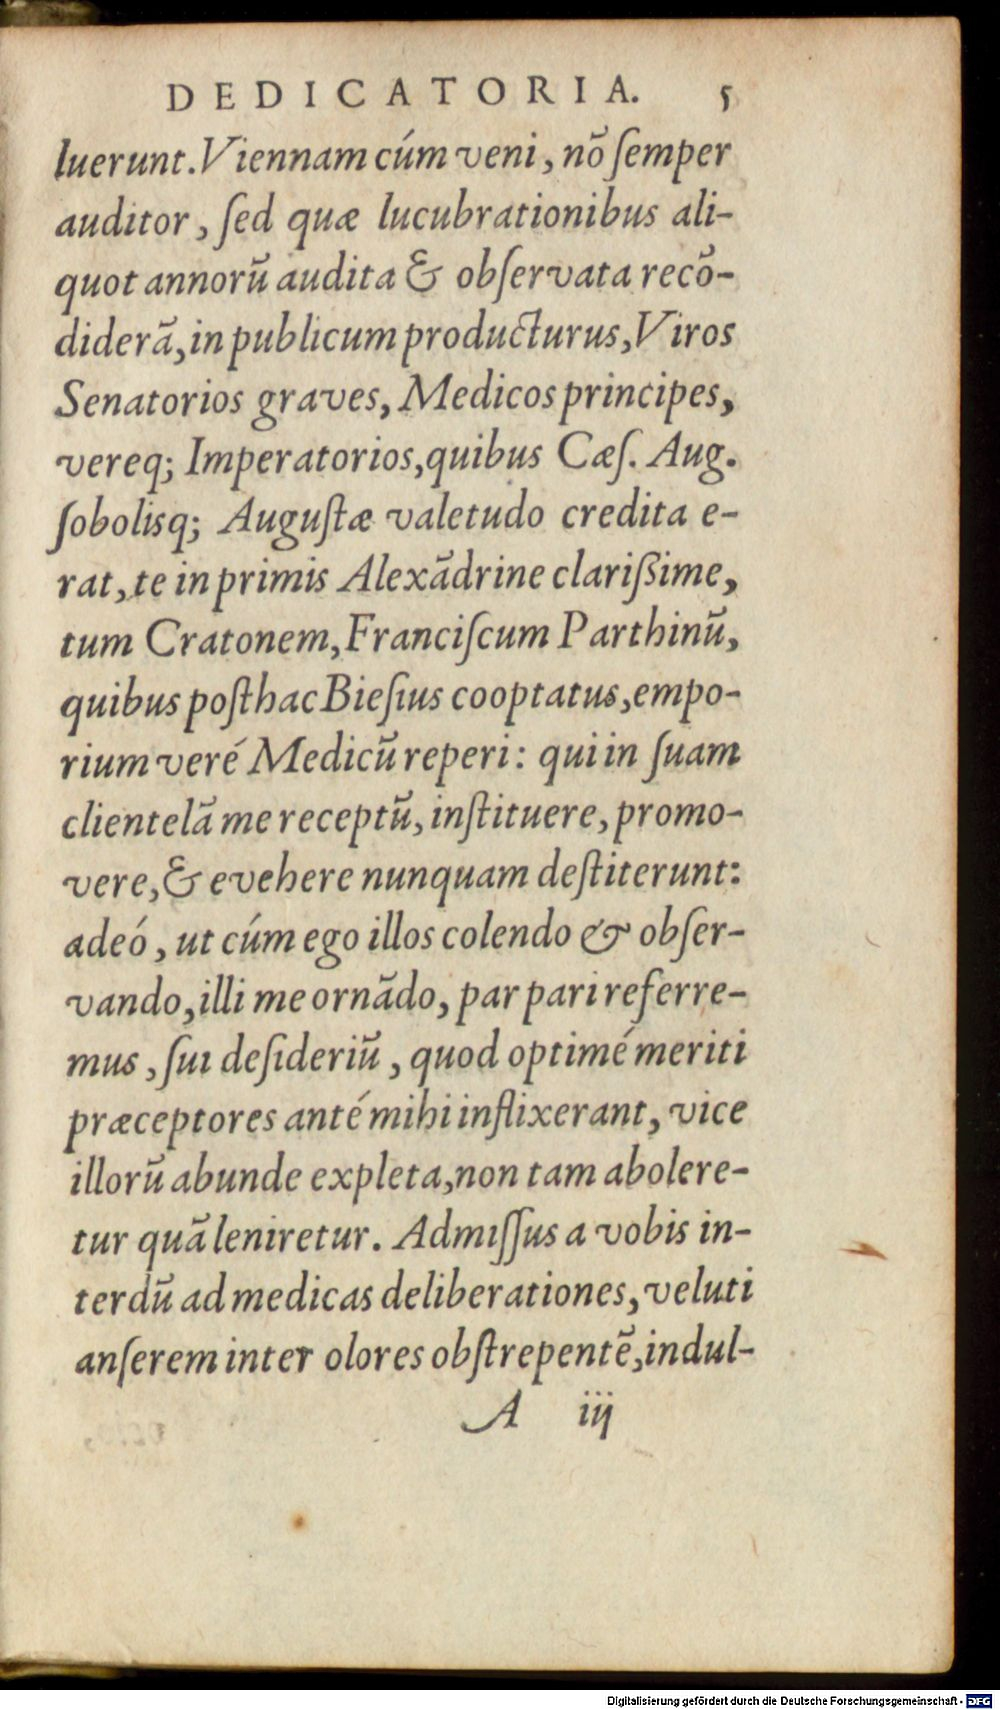 DEDICATORIA. 5
luerunt. Viennam cúm veni, nõ ſemper
auditor, ſed quæ lucubrationibus ali-
quot annorũ audita & obſervata recõ-
diderã, in publicum producturus, Viros
Senatorios graves, Medicos principes,
vereq; Imperatorios, quibus Cæſ. Aug.
ſobolisq; Auguſtæ valetudo credita e-
rat, te in primis Alexãdrine clarißime,
tum Cratonem, Franciſcum Parthinũ,
quibus poſthac Bieſius cooptatus, empo-
rium veré Medicũ reperi: qui in ſuam
clientelã me receptũ, inſtituere, promo-
vere, & evehere nunquam deſtiterunt:
adeó, ut cúm ego illos colendo & obſer-
vando, illi me ornãdo, par pari referre-
mus, ſui deſideriũ, quod optimé meriti
præceptores anté mihi inflixerant, vice
illorũ abunde expleta, non tam abolere-
tur quã leniretur. Admiſſus a vobis in-
terdũ ad medicas deliberationes, veluti
anſerem inter olores obſtrepentẽ, indul-
A iij
Digitalisierung gefördert durch die Deutsche Forschungsgemeinschaft - DFG